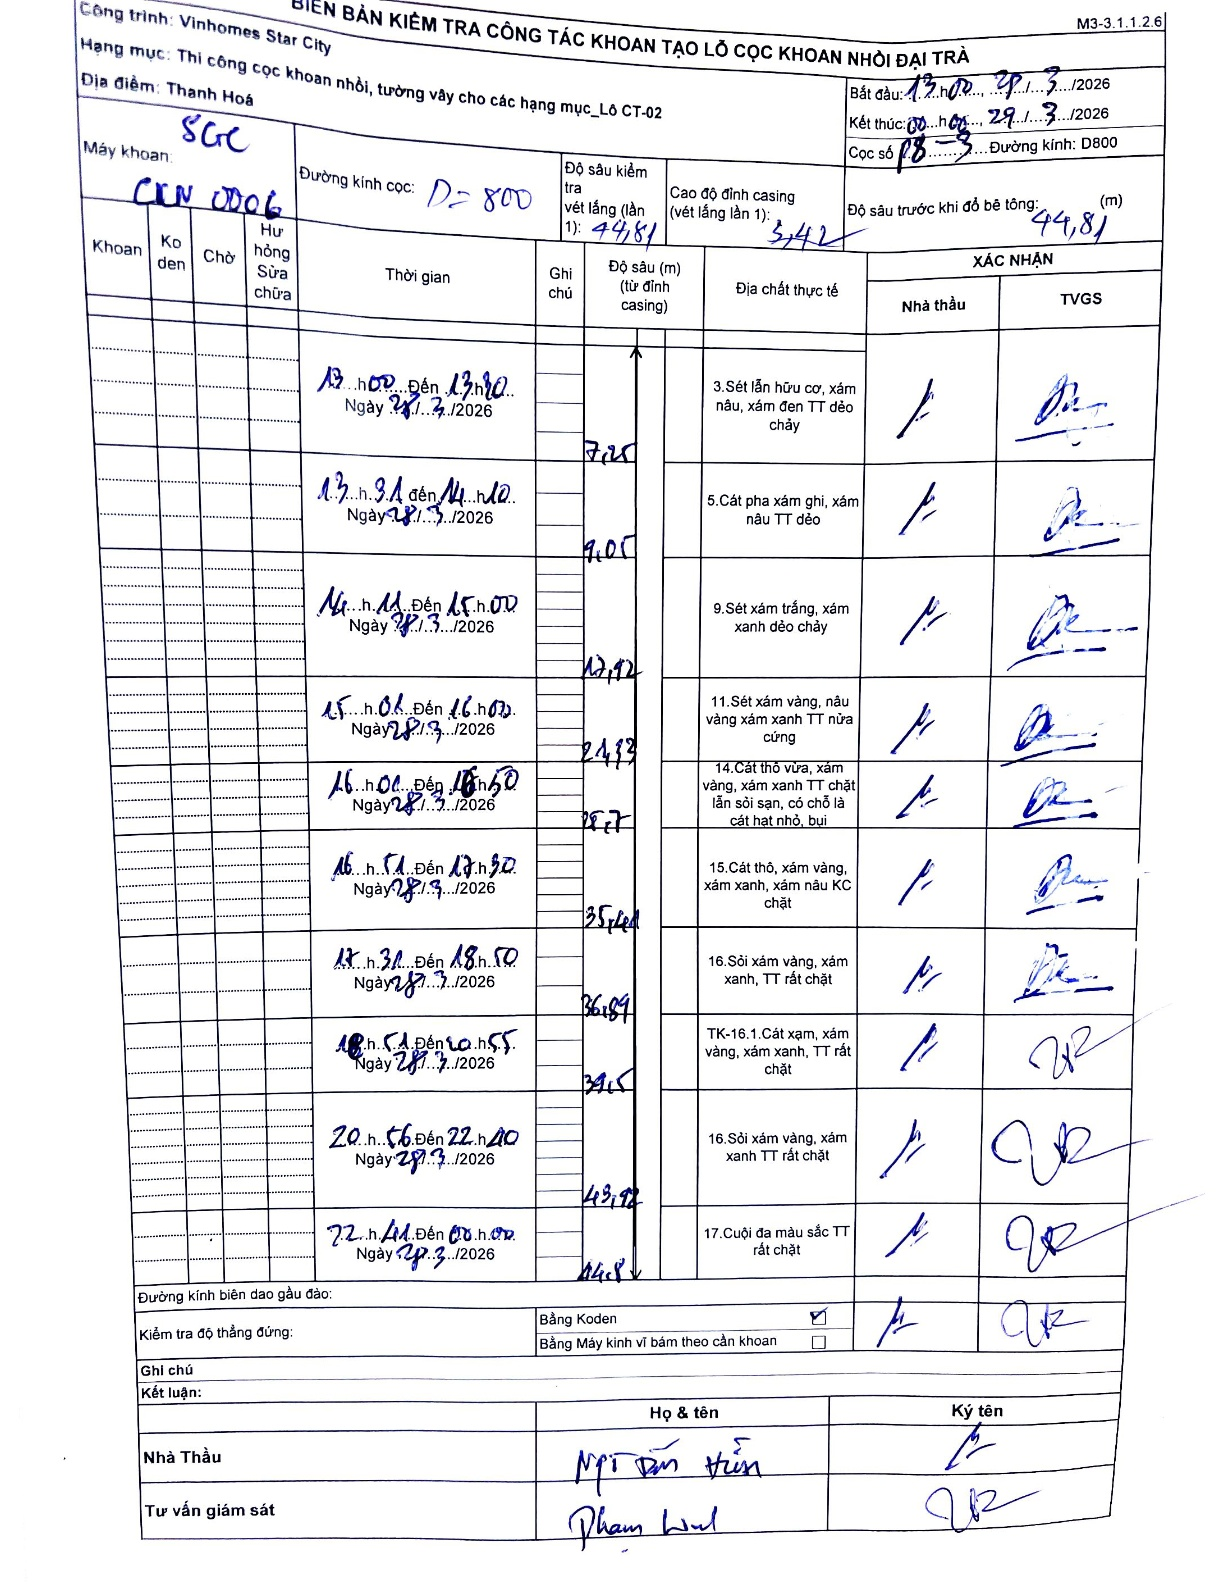 BIÊN BẢN KIỂM TRA CÔNG TÁC KHOAN TẠO LỖ CỌC KHOAN NHỒI ĐẠI TRÀ
M3-3.1.1.2.6
Công trình: Vinhomes Star City
Hạng mục: Thi công cọc khoan nhồi, tường vây cho các hạng mục_Lô CT-02
Địa điểm: Thanh Hoá
Bắt đầu: 13 h 00, 28/3/2026
Kết thúc: 00 h 00, 29/3/2026
Cọc số P8-3 Đường kính: D800
Máy khoan: SGC
CKN 0006
Đường kính cọc: D= 800
Độ sâu kiểm tra vét lắng (lần 1): 44,81
Cao độ đỉnh casing (vét lắng lần 1): 3,42
Độ sâu trước khi đổ bê tông: 44,81 (m)
Khoan
Ko den
Chờ
Hư hỏng Sửa chữa
Thời gian
Ghi chú
Độ sâu (m) (từ đỉnh casing)
Địa chất thực tế
XÁC NHẬN
Nhà thầu
TVGS
13 h 00 Đến 13 h 30
Ngày 28/3/2026
7,25
3.Sét lẫn hữu cơ, xám nâu, xám đen TT dẻo chảy
13 h 31 đến 14 h 10
Ngày 28/3/2026
9,05
5.Cát pha xám ghi, xám nâu TT dẻo
14 h 11 Đến 15 h 00
Ngày 28/3/2026
17,92
9.Sét xám trắng, xám xanh dẻo chảy
15 h 01 Đến 16 h 00
Ngày 28/3/2026
11.Sét xám vàng, nâu vàng xám xanh TT nửa cứng
16 h 01 Đến 16 h 50
Ngày 28/3/2026
14.Cát thô vừa, xám vàng, xám xanh TT chặt lẫn sỏi sạn, có chỗ là cát hạt nhỏ, bụi
16 h 51 Đến 17 h 30
Ngày 28/3/2026
35,41
15.Cát thô, xám vàng, xám xanh, xám nâu KC chặt
17 h 31 Đến 18 h 50
Ngày 28/3/2026
36,89
16.Sỏi xám vàng, xám xanh, TT rất chặt
18 h 51 Đến 20 h 55
Ngày 28/3/2026
39,5
TK-16.1.Cát xạm, xám vàng, xám xanh, TT rất chặt
20 h 56 Đến 22 h 40
Ngày 28/3/2026
43,92
16.Sỏi xám vàng, xám xanh TT rất chặt
22 h 41 Đến 00 h 00
Ngày 28/3/2026
44,8
17.Cuội đa màu sắc TT rất chặt
Đường kính biên dao gầu đào:
Kiểm tra độ thẳng đứng:
Bằng Koden
Bằng Máy kinh vĩ bám theo cần khoan
Ghi chú
Kết luận:
Họ & tên
Ký tên
Nhà Thầu
Tư vấn giám sát
Phạm